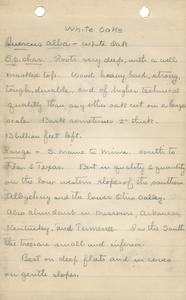 White Oaks
Quercus alba - white oak
Sp. char. Roots very deep, with a well
marked top. Wood heavy hard, strong,
tough, durable, and of higher technical
quality than any other oak cut on a large
scale. Bark sometimes 2" thick.
13 billion feet left.
Range - S. Maine to Minn. south to
Fla. & Texas. Best in quality & quantity
on the low western slopes of the southern
Allegheny and the lower Ohio Valley.
Also abundant in Missouri, Arkansas
Kentucky, and Tennessee. In the South
the trees are small and inferior.
Best on deep flats and in coves
on gentle slopes.